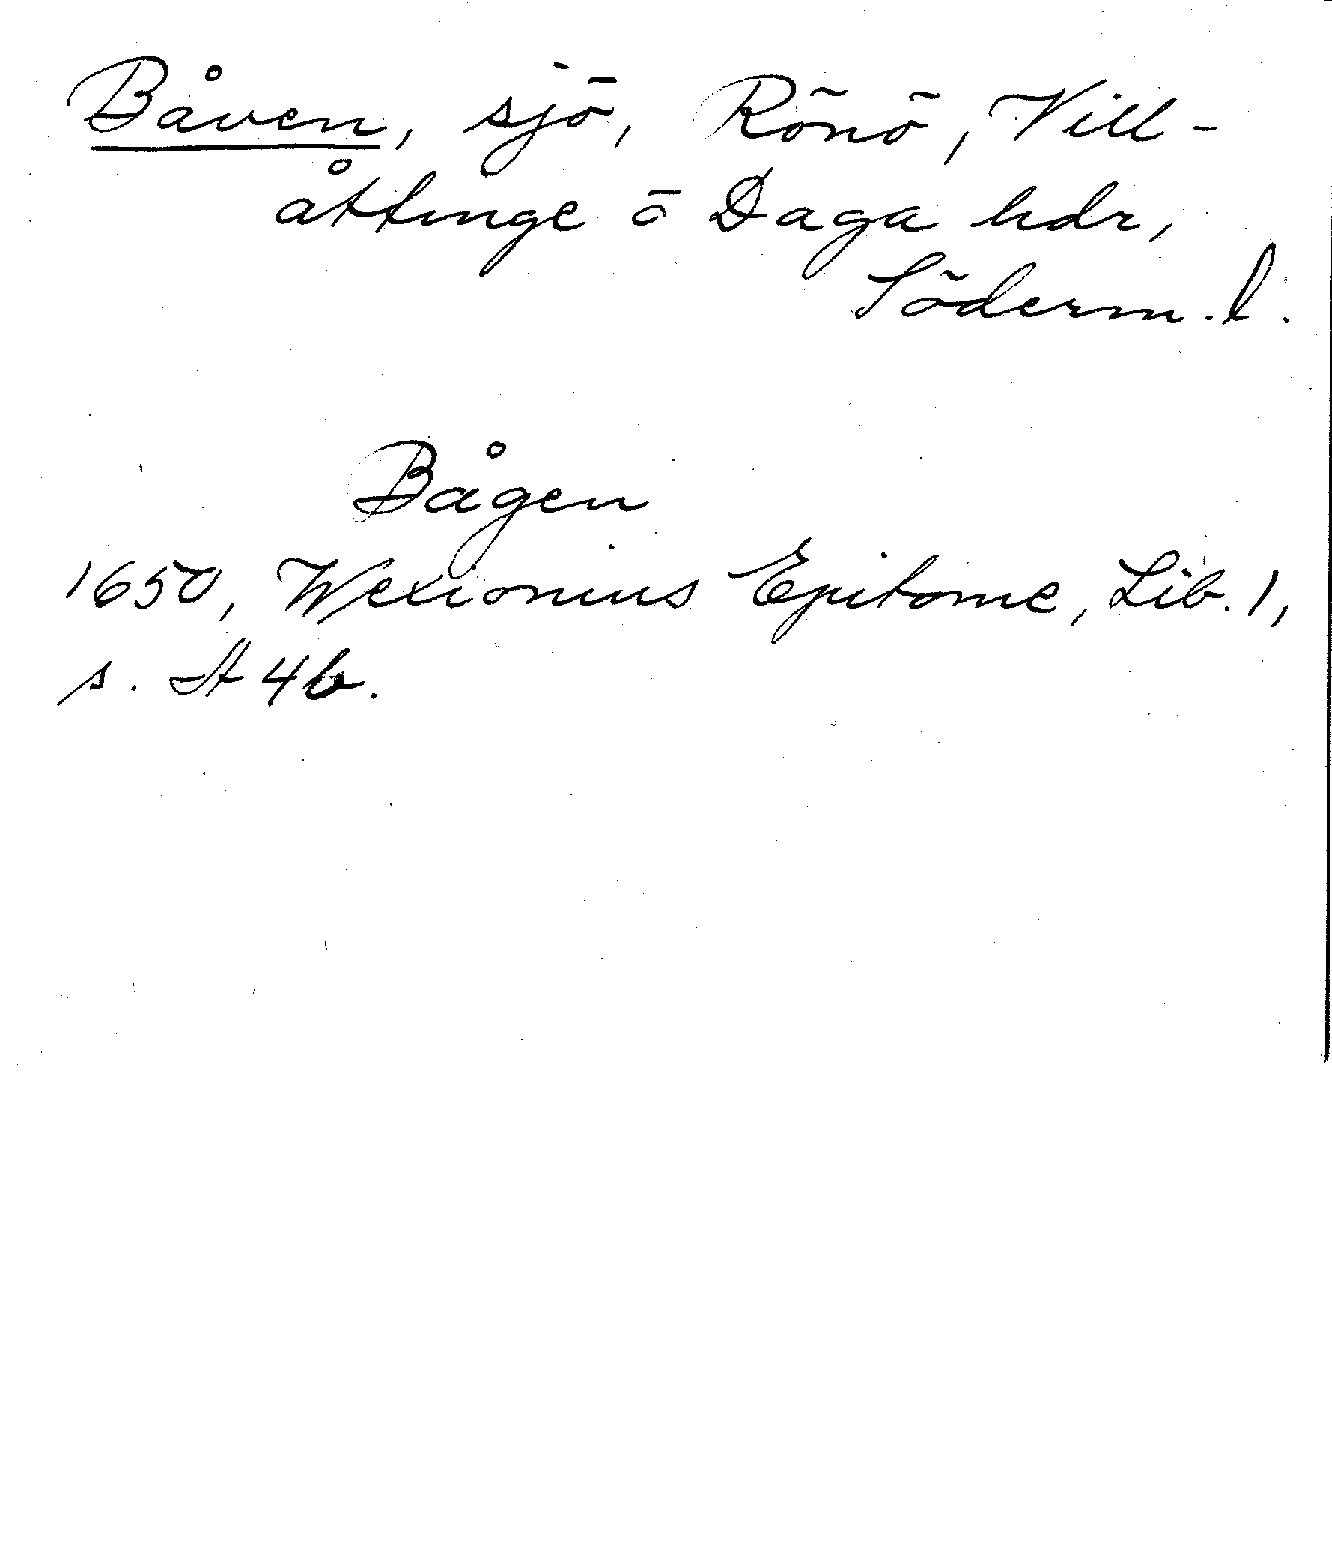 Båven, sjö, Rönö, Vill-
åttinge o Daga hdr,
Söderm. l.
Bågen
1650, Wexionius Epitome, Lib. 1,
s. A 4 b.